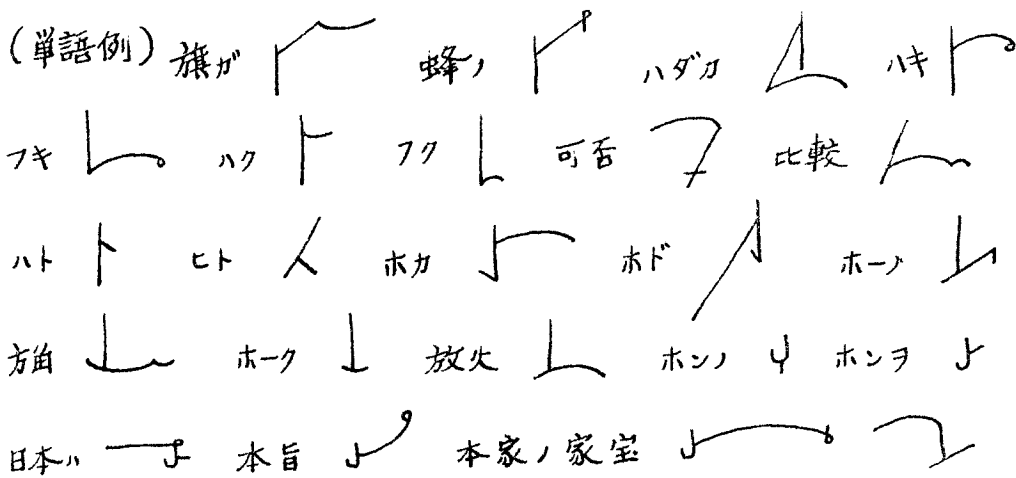 (単語例) 旗ガ 蜂ノ ハダカ ハキ
フキ ハク フク 可否 比較
ハト ヒト ホカ ホド ホーノ
方角 ホーク 放火 ホンノ ホンヲ
日本ハ 本旨 本家ノ家宝